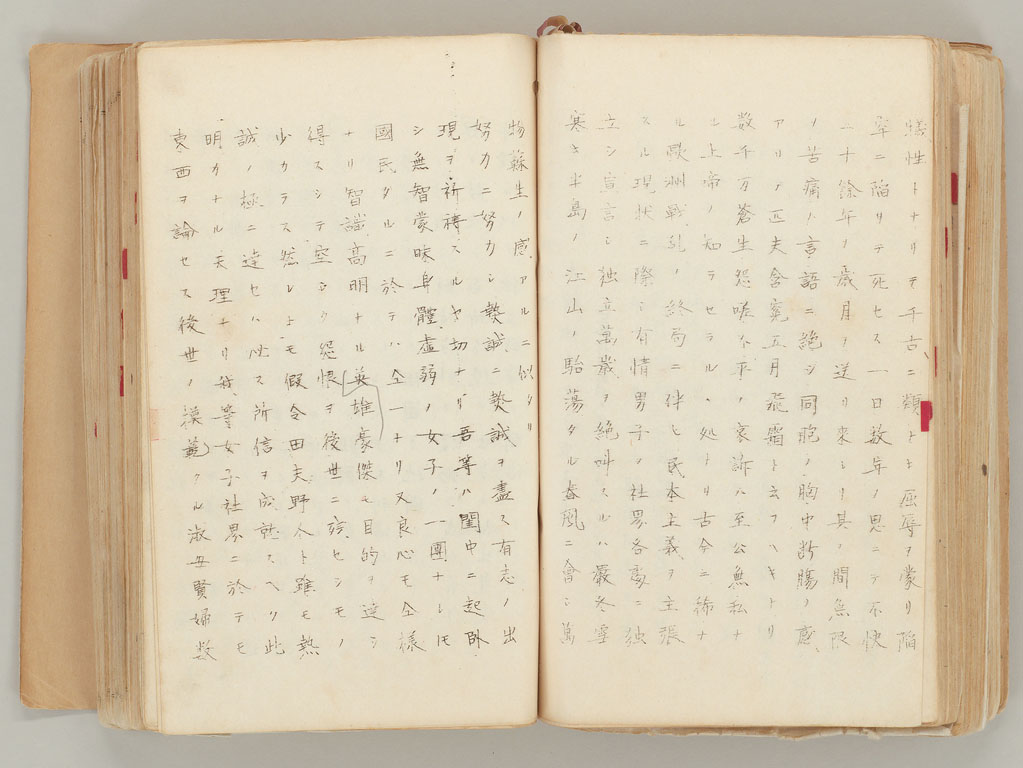 犠牲トナリテ千古ニ類ナキ屈辱ヲ蒙リ陥
穽ニ陥リテ死セス一日数年ノ思ニテ不快
二十余年ノ歳月ヲ送リ来シリ其ノ間無限
ノ苦痛ノ言語ニ絶シ同胞ノ胸中断腸ノ感
アリノ匹夫含寃五月飛霜ト云フヘキナリ
数千万蒼生怨嗟不平ノ哀訴ハ至公無私ナ
ル上帝ノ知ラセラルヽ処ナリ古今ニ稀ナ
ル欧洲戦乱ノ終局ニ伴ヒ民本主義ヲ主張
スル現状ニ際シ有情男子ノ社界各処ニ独
立シ宣言シ独立萬歳ヲ絶叫スルハ厳冬雪
寒キ半島ノ江山ノ駘蕩タル春風ニ會シ萬
物蘇生ノ感アルニ似タリ
努力ニ努力シ熱誠ニ熱誠ヲ盡ス有志ノ出
現ヲ祈祷スルヤ切ナリ吾等ハ閨中ニ起臥
シ無智蒙昧身體虚弱ノ女子ノ一團ナレトモ
國民タルニ於テハ仝一ナリ又良心モ仝様
ナリ智識高明ナル英雄豪傑モ目的ヲ達シ
得スシテ空シク怨恨ヲ後世ニ残セシモノ
少カラス然レトモ假令田夫野人ト雖モ熱
誠ノ極ニ達セハ必ス所信ヲ成就スヘク此
明カナル天理ナリ我等女子社界ニ於テモ
東西ヲ論セス後世ノ漠範タル淑女賢婦数